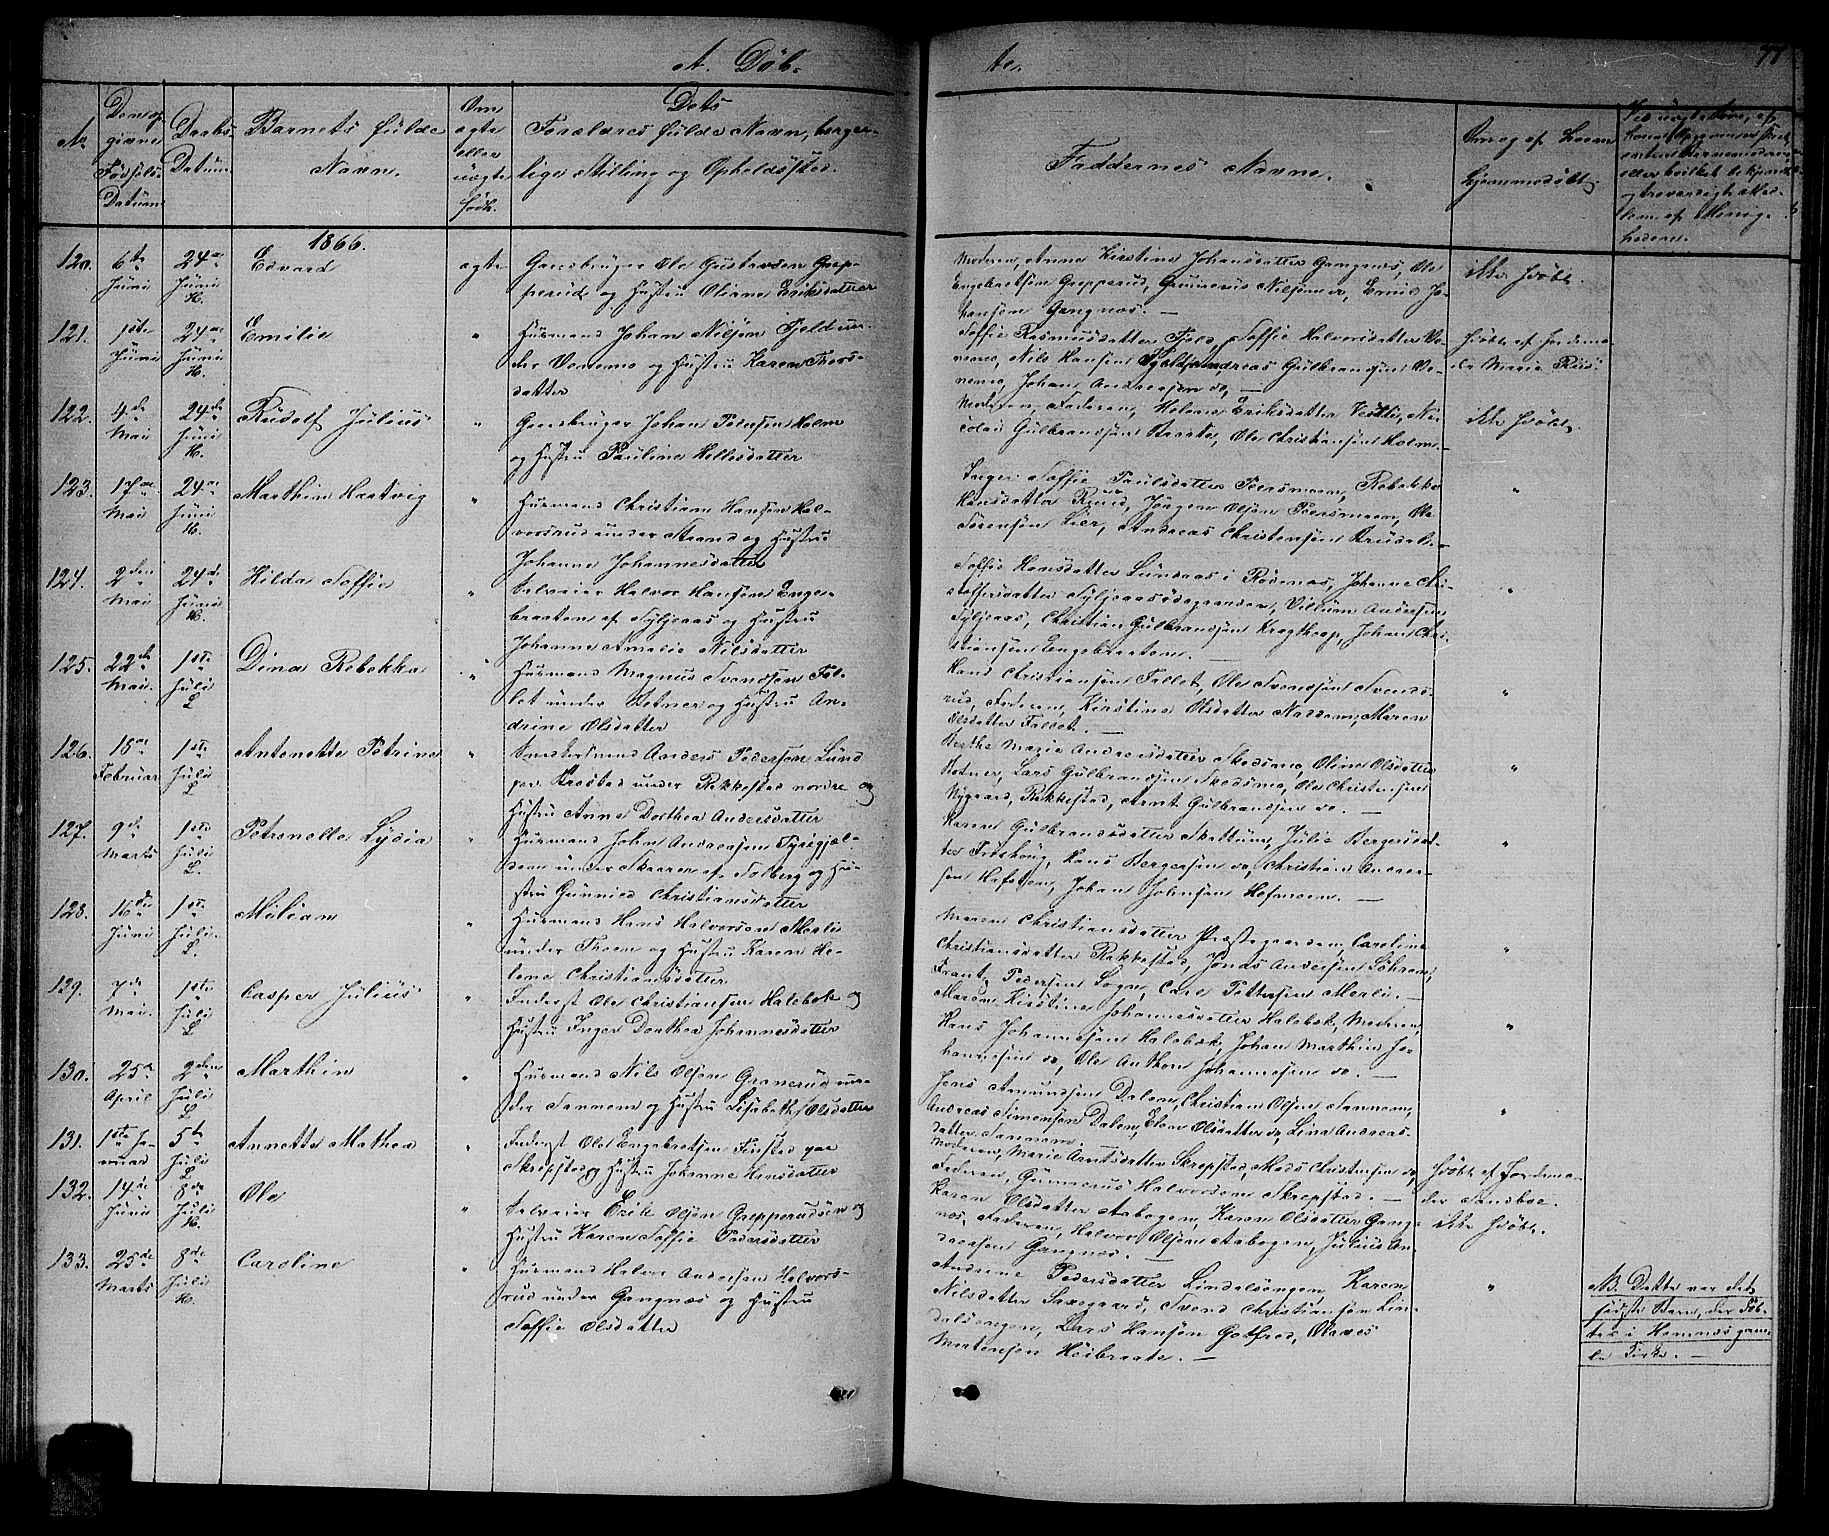 A. Döb-
te.
77
No
Den op-
givne
Födsels-
Datum
Daabs-
Datum
Barnets fulde
Navn.
Om
ægte
eller
uægte
födt.
Dets
Forældres fulde Navn, borger-
lige Stilling og Opholdssted.
Faddernes Navne.
1866.
120.
6te
Juni
24de
Juni
H.
Edvard
ægte
Gaardbruger Ole Gustavsen Grep-
perud og Hustru Oliane Eriksdatter
Moderen, Anne Kirstine Johansdatter Gangnæs, Ole
Engebretsen Grepperud, Gunnerius Nilsen, Emil Jo-
hansen Gangnæs. —
ikke hjdöbt.
121.
1ste
Juni
24de
Juni
H.
Emilie
"
Husmand Johan Nilsen Fjeld un-
der Vonemo og Hustru Karen Thors-
datter
Soffie Rasmusdatter Fjeld, Soffie Halvorsdatter Vo-
nemo, Nils Hansen Fjeld, Andreas Gulbrandsen Vo-
nemo, Johan Andreasen do, —
hjdöbt af Jordemo-
der Marie Ruud.
122.
4de
Mai
24de
Juni
H.
Rudolf Julius
"
Gaardbruger Johan Pedersen Holm
og Hustru Pauline Hellesdatter
Moderen, Faderen, Helene Eriksdatter Vestli, Ni-
colai Gulbrandsen Braate, Ole Christiansen Holm. —
ikke hjdöbt.
123.
17de
Mai
24de
Juni
H.
Marthin Hartvig
"
Husmand Christian Hansen Hal-
vorsrud under Strand og Hustru
Johanne Johannesdatter
Inger Soffie Paulsdatter Persmoen, Rebekka
Hansdatter Ruud, Jörgen Olsen Persmoen, Ole
Sörensen Lier, Andreas Christensen Krusæl. —
"
124.
2den
Mai
24de
Juni
H.
Hilda Soffie
"
Selveier Halvor Hansen Enge-
braaten af Syljeaas og Hustru
Johanne Amalie Nilsdatter
Soffie Hansdatter Lundaas i Rödenæs, Johanne Chri-
stoffersdatter Syljeaasödegaarden, Vilhem Andersen
Syljeaas, Christian Gulbrandsen Krogtorp, Johan Chri-
stiansen Engebraaten. —
"
125.
22de
Mai.
1ste
Juli
L
Dina Rebekka
"
Husmand Magnus Svendsen Fal-
let under Botner og Hustru An-
drine Olsdatter
Hans Christiansen Fallet, Ole Svendsen Svends-
rud, Faderen, Kirstine Olsdatter Naddum, Maren
Olsdatter Fallet. —
"
126.
18de
Februar
1ste
Juli
L
Antonette Petrine
"
Anders Pedersen Lund
under Rakkestad nordre og
Hustru Anne Dorthea Andersdatter
Berthe Marie Andreasdatter Skedsmo, Oline Olsdatter
Botner, Lars Gulbrandsen Skedsmo, Ole Christensen
Nygaard, Rakkestad, Arnt Gulbrandsen do. —
"
127.
9de
Marts
1ste
Juli
L.
Petronelle Lydia
"
Husmand John Andreasen
under Skaarer af Solberg og Hu-
stru Gunnild Christiansdatter
Karen Gulbrandsdatter Skattum, Julie Bergersdat-
ter Fröshoug, Hans Bergersen do, Christian Ander-
sen Hofsten, Johan Johnsen Hofmoen. —
"
128.
16de
Juni
1ste
Juli.
L.
Miliam
"
Husmand Hans Halvorsen Merli
under Thoen og Hustru Karen He-
lene Christiansdatter
Maren Christiansdatter Præstegaarden, Caroline
Christiansdatter Rakkestad,
Frantz Pedersen Sogn, Carl Pettersen Merli. —
"
129.
7de
Mai.
1ste
Juli
L
Casper Julius
"
Inderst Ole Christiansen Halebæk og
Hustru Inger Dorthea Johannesdatter
Maren Kirstine Johannesdatter Halebæk, Moderen,
Hans Johannesen Halebæk, Johan Marthin Jo-
hannesen do, Ole Anthon Johannesen do. —
"
130.
25de
April
2den
Juli
L
Marthin
"
Husmand Nils Olsen Granerud un-
der Sannem og Hustru Lisabeth Olsdatter
Jens Amundsen Dalen, Christian Olsen Sannem,
Andreas Simensen Dalen, Elen Olsdatter do, Lina Andreas-
datter Sannem. —
"
131.
1ste Ja-
nuar
5te
Juli
L
Annette Mathea
"
Inderst Ole Engebretsen Finstad paa
Skrepstad og Hustru Johanne Hansdatter
Moderen, Marie Arntsdatter Skrepstad, Mads Christensen do,
Faderen, Gunnerius Halvorsen Skrepstad. —
hjdöbt af Jordemo-
der Sandboe.
132.
14de
Juni
8de
Juli
H.
Ole
"
Selveier Erik Olsen Grepperudseie og
Hustru Karen Soffie Pedersdatter
Karen Olsdatter Aabogen, Karen Olsdatter Gang-
næs, Faderen, Halvor Olsen Aabogen, Julius An-
dersen Gangnæs. —
ikke hjdöbt.
133.
25de
Marts
8de
Juli
H.
Caroline
"
Husmand Halvor Andersen Halvors-
rud under Gangnæs og Hustru
Soffie Olsdatter
Andrine Pedersdatter Lindalsengen, Karen
Nilsdatter Saxegaard, Svend Christensen Lin-
dalsengen, Lars Hansen Gotfred, Olaves
Mortensen Höibraate. —
"
NB. Dette var det
sidste Barn, der döb-
tes i Hemnæs gam-
le Kirke. —